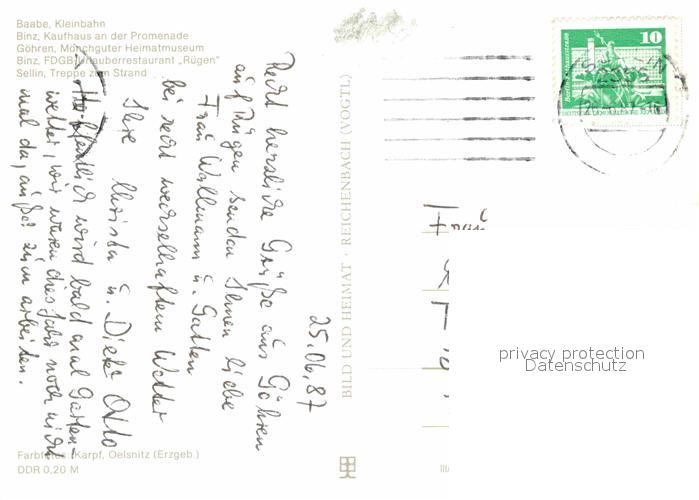 Baabe, Kleinbahn
Binz, Kaufhaus an der Promenade
Göhren, Mönchguter Heimatmuseum
Binz, FDGB-Urlauberrestaurant „Rügen"
Sellin, Treppe zum Strand
25.06.87
Recht herzliche Grüße aus Göhren
auf Rügen senden Ihnen liebe
Frau Wallmann u. Gatten
bei recht wechselhaftem Wetter
Ihre Christa u. Dieter Otto
Hoffentlich wird bald mal Garten-
wetter, wir waren dies Jahr noch nicht
mal da, außer zum arbeiten.
Farbfotos: Karpf, Oelsnitz (Erzgeb.)
DDR 0,20 M
BILD UND HEIMAT · REICHENBACH (VOGTL)
10
Frau
privacy protection
Datenschutz